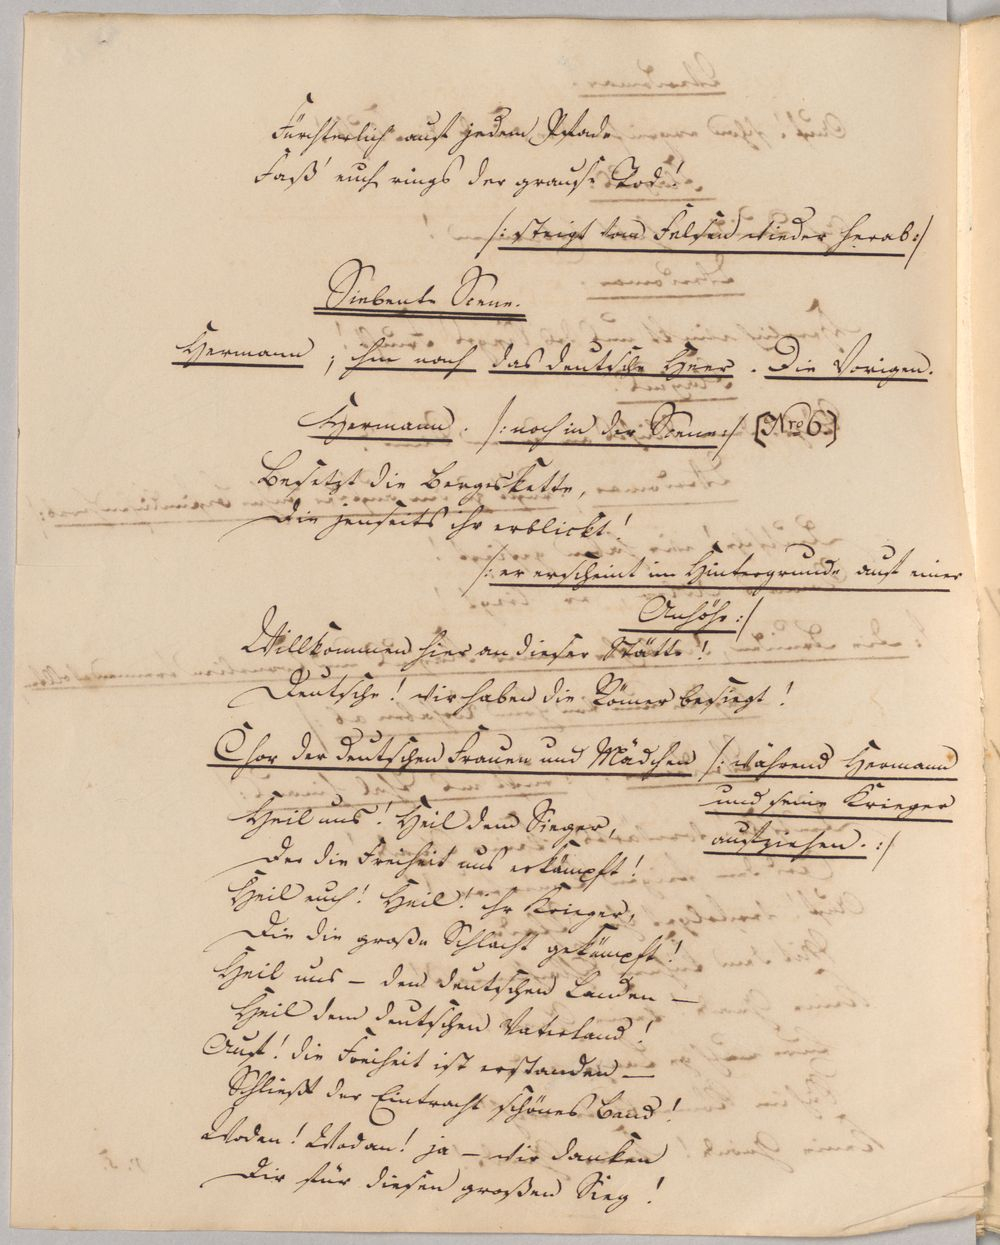 Fürchterlich auf jedem Pfade
Faß' euch rings der grause Tod!
/: steigt vom Felsen wieder herab :/
Siebente Scene.
Hermann, ihm nach das deutsche Heer. Die Vorigen.
Hermann. /: noch in der Scene :/ [Nro 6.]
Besetzt die Bergeskette,
Die jenseits ihr erblickt!
/: er erscheint im Hintergrunde auf einer
Anhöhe :/
Willkommen hier an dieser Stätte!
Deutsche! wir haben die Römer besiegt!
Chor der deutschen Frauen und Mädchen /: während Hermann
und seine Krieger
aufziehen. :/
Heil uns! Heil dem Sieger,
Der die Freiheit uns erkämpft!
Heil euch! Heil! ihr Krieger,
Die die große Schlacht gekämpft!
Heil uns – den deutschen Landen –
Heil dem deutschen Vaterland!
Auf! die Freiheit ist erstanden –
Schließt der Eintracht schönes Band!
Wodan! Wodan! ja – wir danken
Dir für diesen großen Sieg!